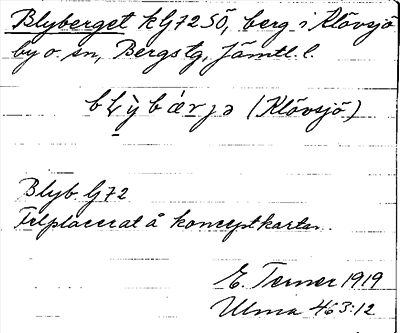 Blyberget kLj72SÖ, berg i Klövsjö
by o sn, Bergs tg, Jämtl. l.
(Klövsjö)
Blyb Lj72
Felplacerat å konceptkartan.
E. Terner 1919
Ulma 463:12